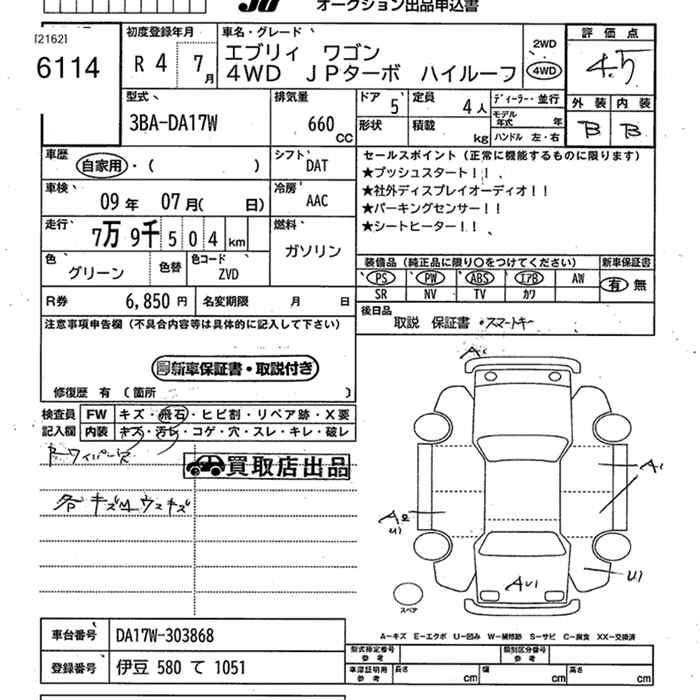 オークション出品申込書
[2162]
6114
初度登録年月 R 4 7月
車名・グレード エブリィ ワゴン
4WD JPターボ ハイルーフ
2WD
4WD
評価点 4.5
外装 内装
B B
型式 3BA-DA17W
排気量 660 CC
ドア 5 定員 4人
形状 積載 kg
ディーラー・並行
モデル年式 年
ハンドル 左・右
車歴 自家用・( )
シフト DAT
車検 09年 07月( 日)
冷房 AAC
走行 7万9千504km
燃料 ガソリン
色 グリーン 色替 色コード ZVD
セールスポイント(正常に機能するものに限ります)
★プッシュスタート!!
★社外ディスプレイオーディオ!!
★パーキングセンサー!!
★シートヒーター!!
装備品(純正品に限り○をつけてください) 新車保証書
PS PW ABS エアB AW 有 無
SR NV TV カワ
R券 6,850円 名変期限 月 日
後日品
取説 保証書・スマートキー
注意事項申告欄(不具合内容等は具体的に記入して下さい)
新車保証書・取説付き
修復歴 有 (箇所 )
検査員 FW キズ・飛石・ヒビ割・リペア跡・X要
記入欄 内装 キズ・汚レ・コゲ・穴・スレ・キレ・破レ
買取店出品
各キズ
A1
A1
A2
U1
U1
AU1
スペア
車台番号 DA17W-303868
登録番号 伊豆 580 て 1051
A-キズ E-エクボ U-凹み W-補修跡 S-サビ C-腐食 XX-交換済
型式指定番号 参考 類別区分番号 参考
車庫証明用 参考 長さ cm 幅 cm 高さ cm